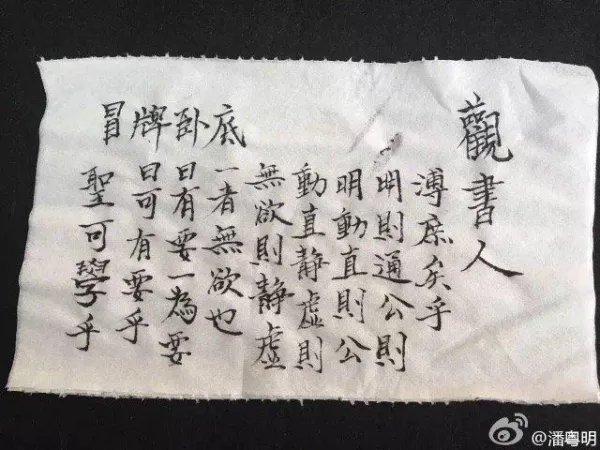 冒牌卧底
聖可學乎
曰可有要乎
曰有要一為要
一者無欲也
無欲則静虛
動直静虛則
明動直則公
明則通公則
溥庶矣乎
觀書人
@潘粤明